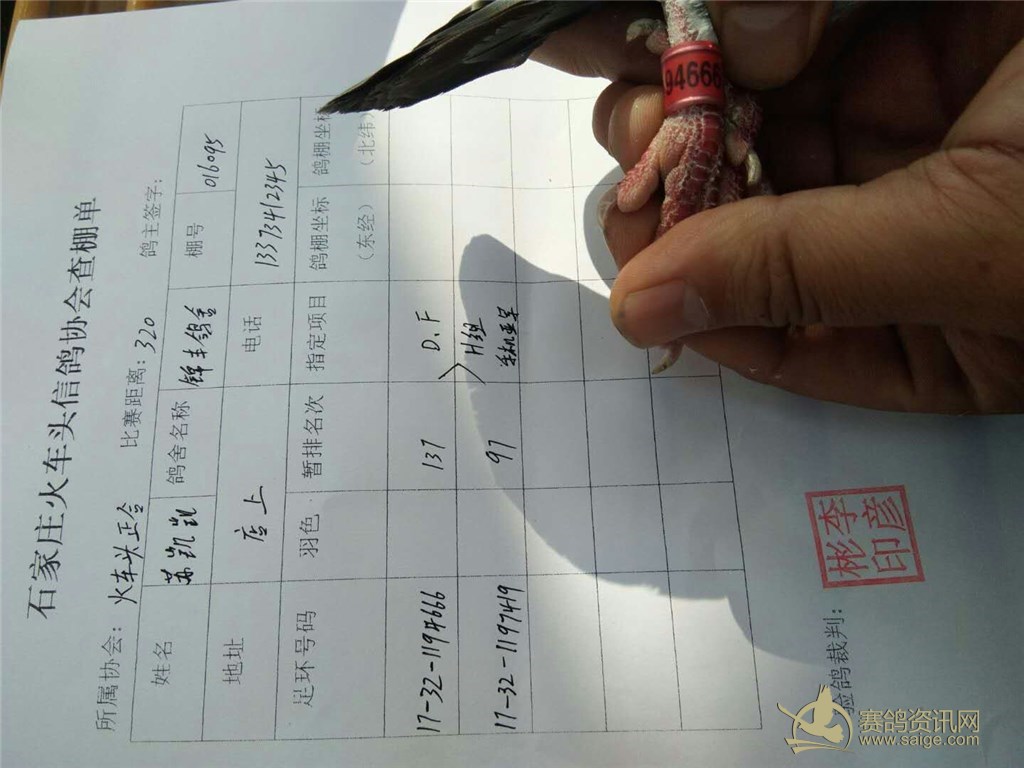 石家庄火车头信鸽协会查棚单
所属协会：火车头正合 比赛距离：320 鸽主签字：
姓名 苏凯凯 鸽舍名称 锦丰鸽舍 棚号 016095
地址 店上 电话 13373412345
足环号码 羽色 暂排名次 指定项目 鸽棚坐标（东经） 鸽棚坐标（北纬）
17-32-1194666 137 D、F
17-32-1197419 97 H组
验鸽裁判：
李彦彬印
94666
赛鸽资讯网
www.saige.com